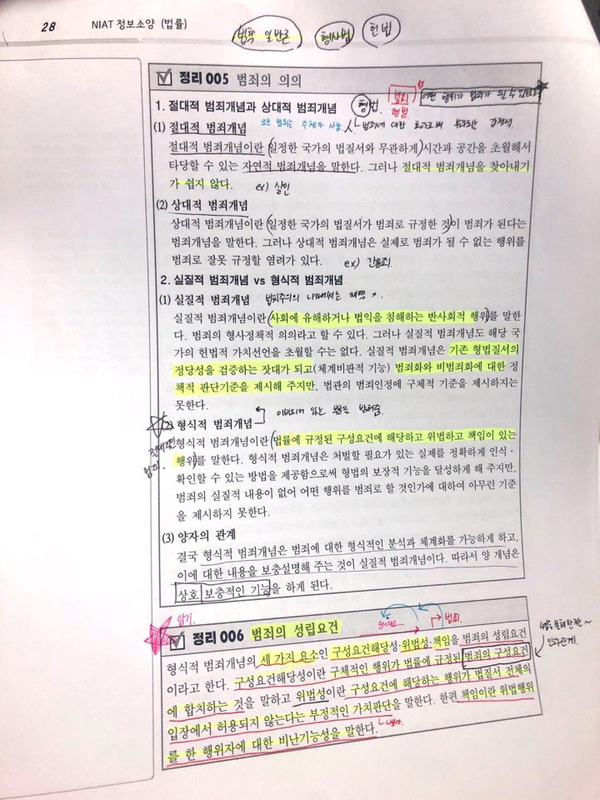 28 NIAT 정보소양 (법률)
법학 일반론 형사법 헌법
정리 005 범죄의 의의
1. 절대적 범죄개념과 상대적 범죄개념
(1) 절대적 범죄개념
절대적 범죄개념이란 (일정한 국가의 법질서와 무관하게) 시간과 공간을 초월해서
타당할 수 있는 자연적 범죄개념을 말한다. 그러나 절대적 범죄개념을 찾아내기
가 쉽지 않다. ex) 살인
(2) 상대적 범죄개념
상대적 범죄개념이란 (일정한 국가의 법질서가 범죄로 규정한 것)이 범죄가 된다는
범죄개념을 말한다. 그러나 상대적 범죄개념은 실제로 범죄가 될 수 없는 행위를
범죄로 잘못 규정할 염려가 있다. ex) 간통죄.
2. 실질적 범죄개념 vs 형식적 범죄개념
(1) 실질적 범죄개념
실질적 범죄개념이란 (사회에 유해하거나 법익을 침해하는 반사회적 행위)를 말한
다. 범죄의 형사정책적 의의라고 할 수 있다. 그러나 실질적 범죄개념도 해당 국
가의 헌법적 가치선언을 초월할 수는 없다. 실질적 범죄개념은 기존 형법질서의
정당성을 검증하는 잣대가 되고(체계비판적 기능) 범죄화와 비범죄화에 대한 정
책적 판단기준을 제시해 주지만, 법관의 범죄인정에 구체적 기준을 제시하지는
못한다.
(2) 형식적 범죄개념
형식적 범죄개념이란 (법률에 규정된 구성요건에 해당하고 위법하고 책임이 있는
행위)를 말한다. 형식적 범죄개념은 처벌할 필요가 있는 실제를 정확하게 인식·
확인할 수 있는 방법을 제공함으로써 형법의 보장적 기능을 달성하게 해 주지만,
범죄의 실질적 내용이 없어 어떤 행위를 범죄로 할 것인가에 대하여 아무런 기준
을 제시하지 못한다.
(3) 양자의 관계
결국 형식적 범죄개념은 범죄에 대한 형식적인 분석과 체계화를 가능하게 하고,
이에 대한 내용을 보충설명해 주는 것이 실질적 범죄개념이다. 따라서 양 개념은
상호 보충적인 기능을 하게 된다.
암기.
정리 006 범죄의 성립요건
범죄.
형식적 범죄개념의 세 가지 요소인 구성요건해당성·위법성·책임을 범죄의 성립요건
이라고 한다. 구성요건해당성이란 구체적인 행위가 법률에 규정된 범죄의 구성요건
에 합치하는 것을 말하고 위법성이란 구성요건에 해당하는 행위가 법질서 전체의
입장에서 허용되지 않는다는 부정적인 가치판단을 말한다. 한편 책임이란 위법행위
를 한 행위자에 대한 비난가능성을 말한다.